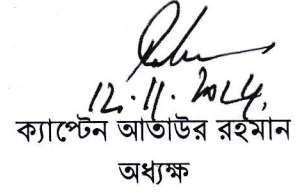 12.11.2024
ক্যাপ্টেন আতাউর রহমান
অধ্যক্ষ